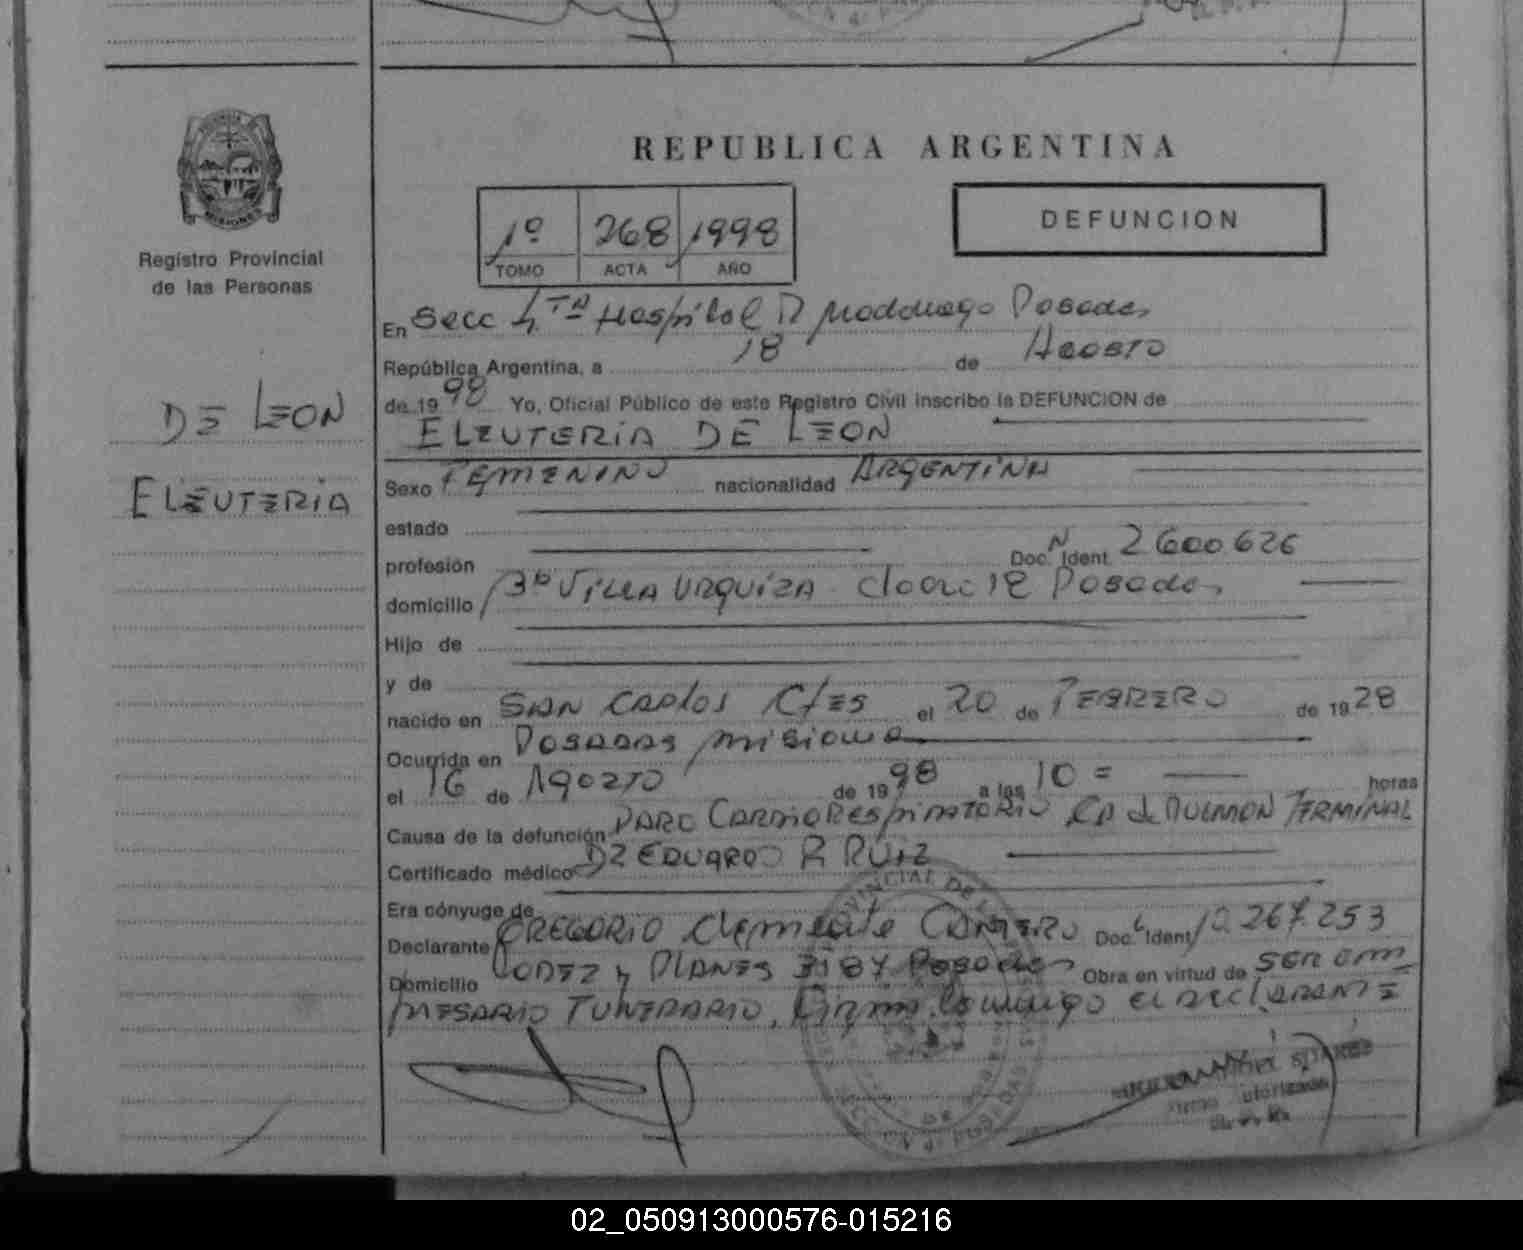 REPUBLICA ARGENTINA
1º 268 1998
TOMO ACTA AÑO
DEFUNCION
Registro Provincial
de las Personas
DE LEON
ELEUTERIA
En Secc 4TA Hospital R Madariaga Posadas
República Argentina, a 18 de Agosto
de 1998 Yo, Oficial Público de este Registro Civil inscribo la DEFUNCION de
ELEUTERIA DE LEON
Sexo FEMENINO nacionalidad ARGENTINA
estado
profesión Doc. N Ident. 2600626
domicilio B° VILLA URQUIZA Posadas
Hijo de
y de
nacido en SAN CARLOS C/ES el 20 de FEBRERO de 1928
Ocurrida en POSADAS misiones
el 16 de AGOSTO de 1998 a las 10 = horas
Causa de la defunción PARO CARDIORESPIRATORIO CA de PULMON TERMINAL
Certificado médico DR EDUARDO R RUIZ
Era cónyuge de
Declarante GREGORIO Clemente Doc. Ident 10.267.253
Domicilio LOPEZ y PLANES 3184 Posadas Obra en virtud de ser em
PRESARIO FUNERARIO, Firma conmigo el DECLARANTE
02_050913000576-015216